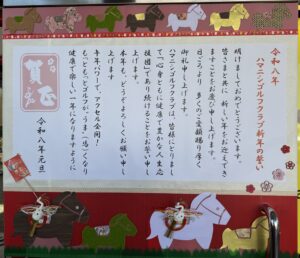 令和八年
ハマニシゴルフクラブ新年の誓い
明けましておめでとうございます。
皆さまと共に新しい年をお迎えでき
ますことをお慶び申し上げます。
日ごろより多くのご愛顧賜り厚く
御礼申し上げます。
ハマニシゴルフクラブは、皆様にとりまし
て「心身ともに健康で豊かな人生応
援団」であり続けることをお誓い申し
上げます。
本年も、どうぞよろしくお願い申し
上げます。
午年パワーで、アクセル全開!
もっともっとゴルフが“うま”馬くなり
健康で楽しい一年になりますように
令和八年元旦
賀正